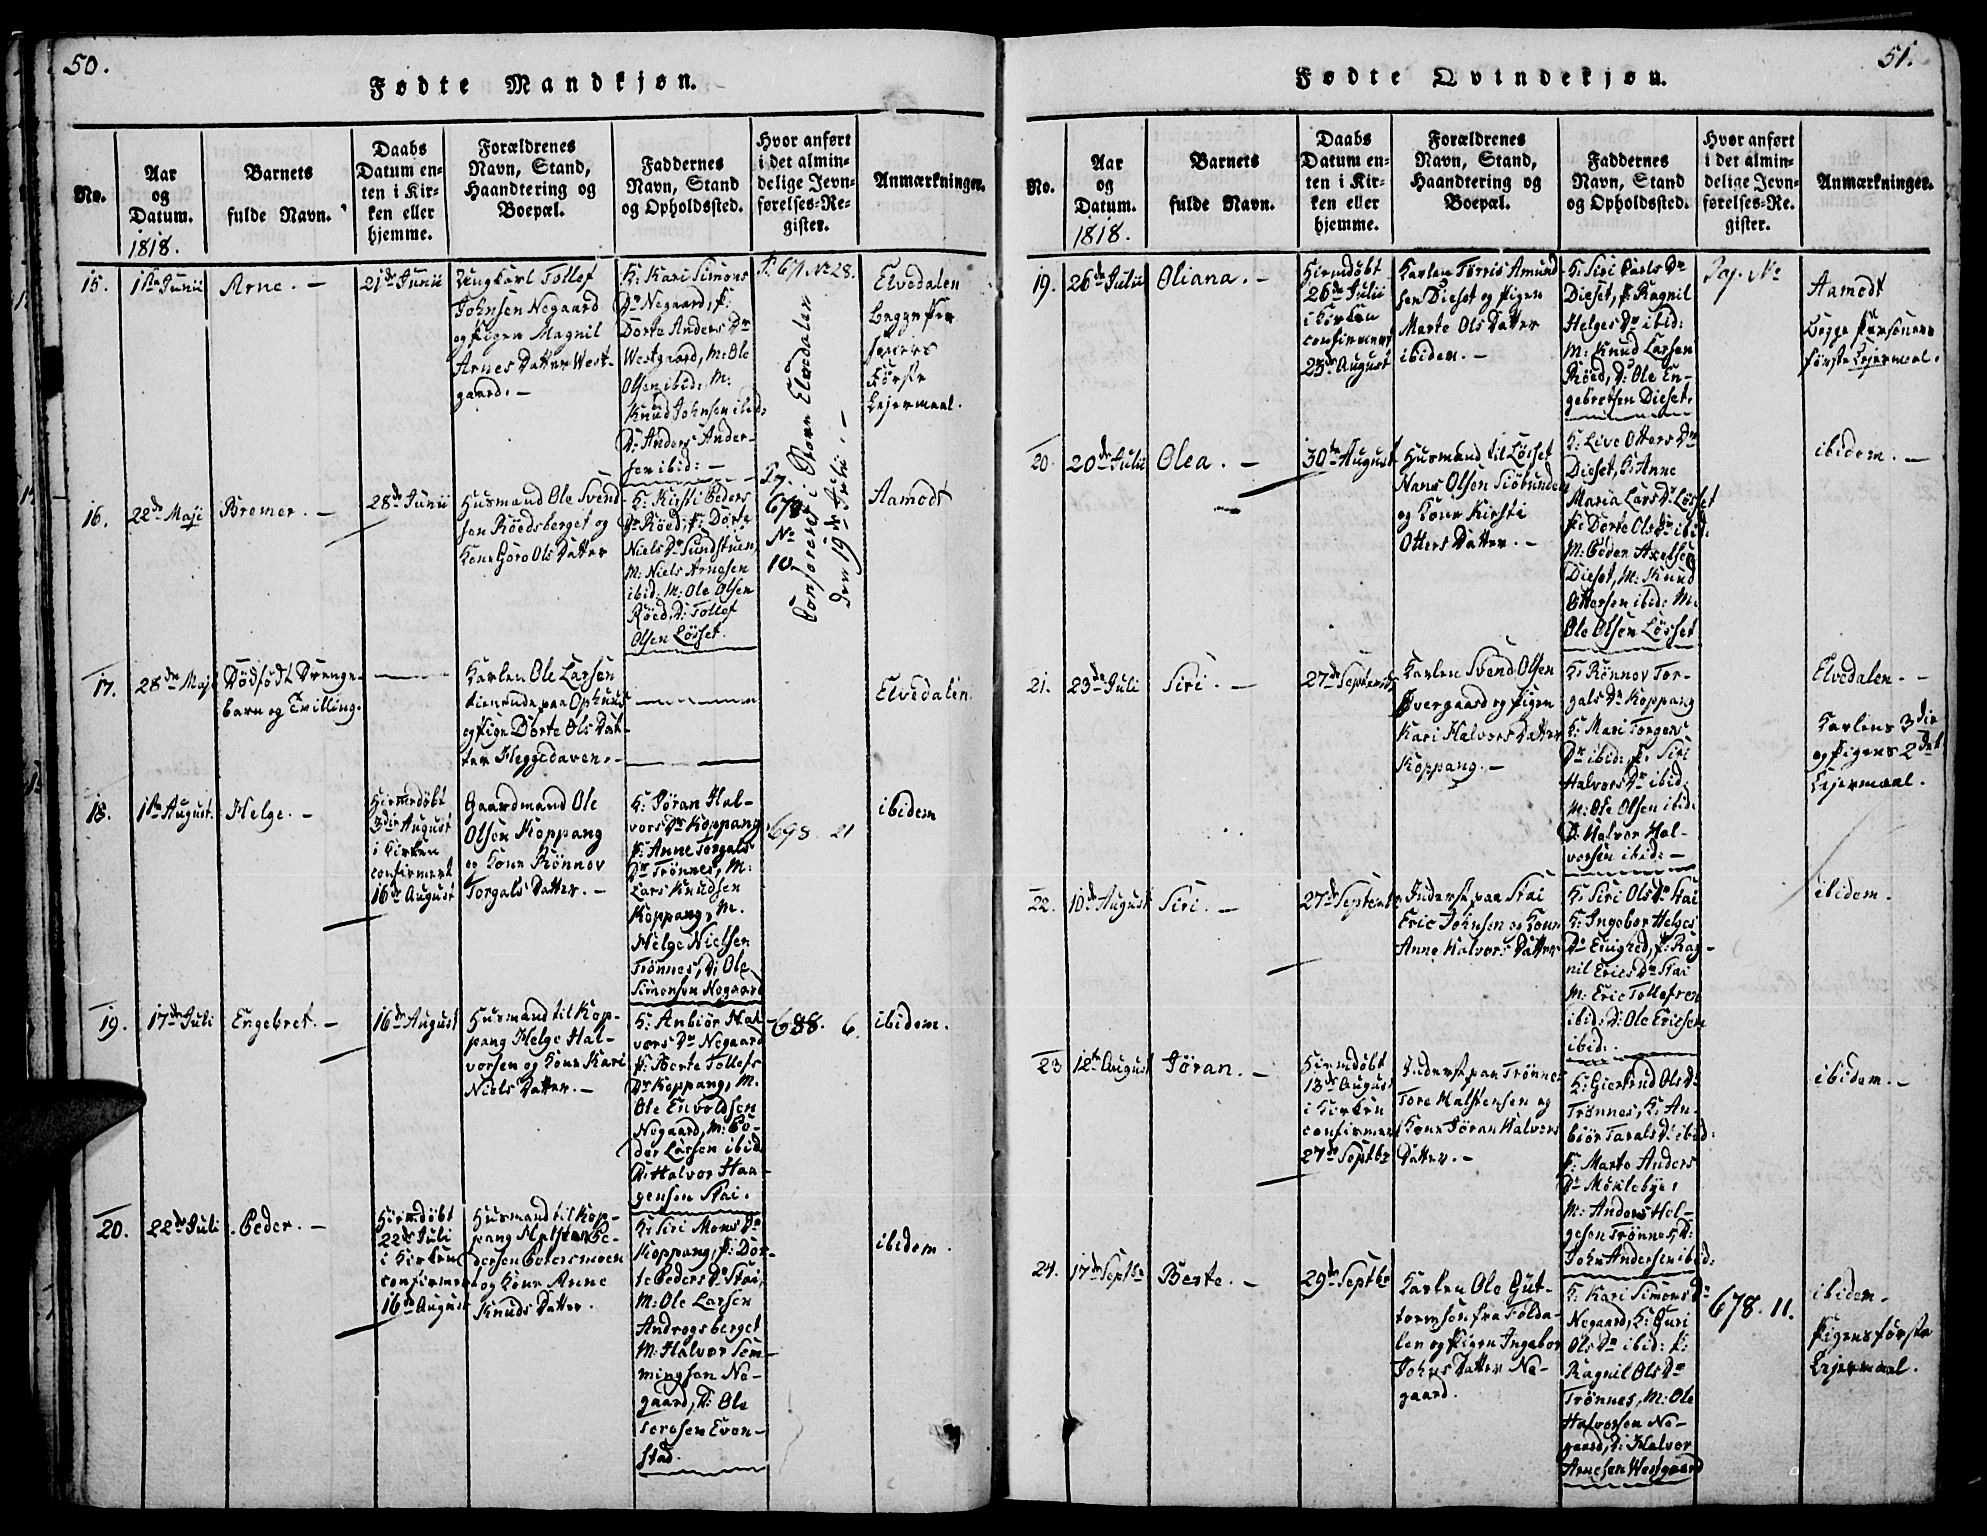 50.
Fødte Mandkjøn.
No.
Aar
og
Datum.
1818.
Barnets
fulde Navn.
Daabs
Datum en-
ten i Kir-
ken eller
hjemme.
Forældrenes
Navn, Stand,
Haandtering og
Boepæl.
Faddernes
Navn, Stand
og Opholdssted.
Hvor anført
i det almin-
delige Jevn-
førelses-Re-
gister.
Anmærkninger.
15.
1ste Junii
Arne. –
21de Junii
Ungkarl Tollef
Johnsen Negaard
og Pigen Magnil
Arnes Datter West-
gaard. –
K: Kari Simons
Dr Negaard, P:
Dorte Anders Dr
Westgaard, M: Ole
Olsen ibid: M:
Knud Johnsen ibid:
D: Anders Ander-
sen ibid: –
P. 671 No 28.
Confereret i Store Elvedalen
den 19de Julii. –
Elvedalen
Begge Per-
soners
første
Lejermaal.
16.
22de Maji
Bremer. –
28de Junii
Husmand Ole Svend-
sen Röedsberget og
Kone Goro Ols Datter
K: Kirsti Peders
Dr Röed, P: Dorte
Niels Dr Sundstuen
M: Niels Arnesen
ibid: M: Ole Olsen
Röed, D: Tollef
Olsen Lösset.
678
No
10.
Aamodt
17.
28de Maji
Dödfödt Drenge-
barn og Tvilling.
Karlen Ole Larsen
tienende paa Ophuus
og Pige Dorte Ols Dat-
ter Heggedaven. –
Elvedalen
18.
1ste August.
Helge. –
Hiemdöbt
3die August
i Kirken
confirmert
16de August
Gaardmand Ole
Olsen Koppang
og Kone Rönnov
Torgals Datter. –
K: Jöran Hal-
vors Dr Koppang
P: Anne Torgals
Dr Trönnes, M:
Lars Knudsen
Koppang, M.
Helge Nielsen
Trönnes, D: Ole
Simensen Negaard
698. 21
ibidem
19.
17de Juli
Engebret. –
16de August
Husmand til Kop-
pang Helge Hal-
vorsen og Kone Kari
Niels Datter. –
K: Anbiör Hal-
vors Dr Negaard
P: Berte Tollefs
Dr Koppang, M.
Ole Envoldsen
Negaard, M: Pe-
der Larsen ibid
D: Halvor Haa-
gensen Stai.
688. 6.
ibidem.
20.
22de Juli
Peder. –
Hiemdöbt
22de Juli
i Kirken
confirmert
16de August
Husmand til Kop-
pang Halsten Pe-
dersen Petersmoen
og Kone Anne
Knuds Datter.
K: Siri Mons Dr
Koppang, P: Dor-
te Peders Dr Stai,
M: Ole Larsen
Androgsberget
M: Halvor Sem-
mingsen Ne-
gaard, D: Ole
Even-
stad.
ibidem.
51.
Fødte Qvindekjøn.
No.
Aar
og
Datum.
1818.
Barnets
fulde Navn.
Daabs
Datum en-
ten i Kir-
ken eller
hjemme.
Forældrenes
Navn, Stand,
Haandtering og
Boepæl.
Faddernes
Navn, Stand
og Opholdssted.
Hvor anført
i det almin-
delige Jevn-
førelses-Re-
gister.
Anmærkninger.
19.
26de Julii
Oliana. –
Hiemdöbt
26de Julii
i Kirken
confirmert
23de August
Karlen Torris Amund-
sen Dieset og Pigen
Marte Ols Datter
ibidem. –
K: Siri Carls Dr
Dieset, P: Ragnil
Helges Dr ibid:
M: Knud Larsen
Röed, D: Ole En-
gebretsen Dieset.
Pag. No
Aamodt
Begge Personers
første Lejermaal.
20.
20de Julii
Olea. –
30te August
Husmand til Lösset
Hans Olsen Siöbunden
og Kone Kirsti
Otters Datter. –
K: Live Otters Dr
Dieset, K: Anne
Maria Lars Dr Lösset
P: Dorte Ols Dr ibid:
M: Peder Axelsen
Dieset, M: Knud
Ottersen ibid: M:
Ole Olsen Lösset
ibidem. –
21.
23de Juli
Siri. –
27de Septembr
Karlen Svend Olsen
Övergaard og Pigen
Kari Halvors Datter
Koppang. –
K: Rönnov Tor-
gals Dr Koppang
K: Mari Torgers
Dr ibid: P: Siri
Halvors Dr ibid
M: Ole Olsen ibid:
D: Halvor Hal-
vorsen ibid: –
Elvedalen. –
Karlens 3die
og Pigens 2det
Lejermaal.
22.
10de August
Siri. –
27de Septembr
Inderst paa Stai
Eric Johnsen og Kone
Anne Halvors Datter
K: Siri Ols Dr Stai
K: Ingebor Helges
Dr , P: Rag-
nil Erics Dr Stai
M: Eric Tollefsen
ibid: D: Ole Ericsen
ibid:.
ibidem.
23
12te August
Jöran. –
Hiemdöbt
13de August
i Kirken
confirmert
27de Septbr
Inderst paa Trönnes
Tore Halstensen og
Kone Jöran Halvors
Datter. –
K: Giertrud Ols Dr
Trönnes, K: An-
biör Tarals Dr ibid:
P: Marte Anders
Dr Möklebye,
M: Anders Hel-
gesen Trönnes, D:
John Andersen ibid:
ibidem. –
24.
17de Septbr
Berte. –
29de Septbr
Karlen Ole Gut-
tormsen fra Folda-
len og Pigen Ingebor
Johns Datter Ne-
gaard.
K: Kari Simons Dr
Negaard, K: Guri
Ols Dr ibid: P:
Ragnil Ols Dr
Trönnes, M: Ole
Halvorsen Ne-
gaard, D: Halvor
Arnesen Westgaard
678. 11.
ibidem.
Pigens første
Lejermaal.